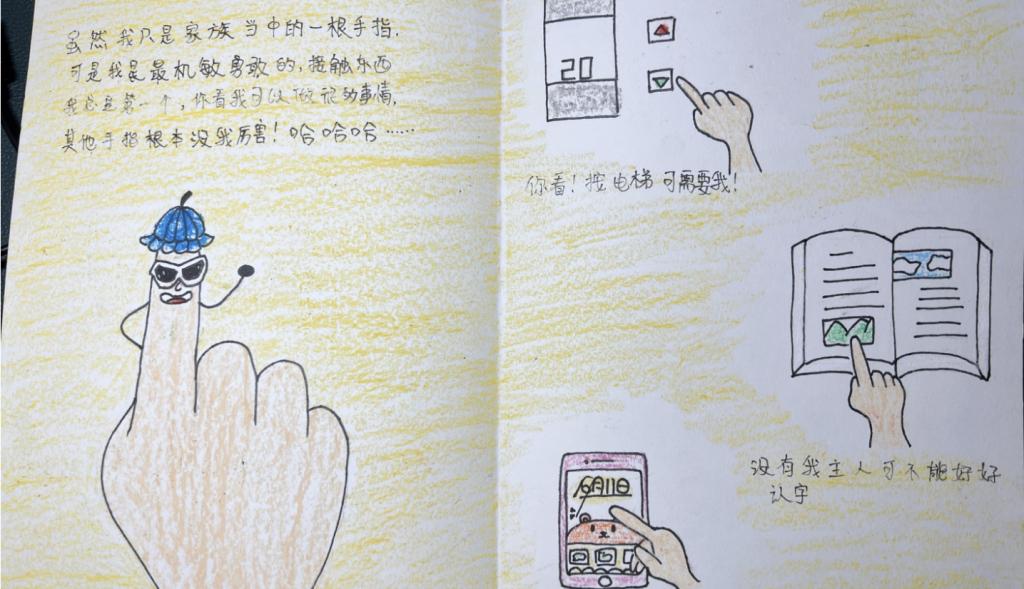 虽然我只是家族当中的一根手指.
可是我是最机敏勇敢的,接触东西
我总是第一个,你看我可以做很多事情,
其他手指根本没我厉害!哈哈哈……
20
你看!按电梯可需要我!
没有我主人可不能好好
认字
6月11日